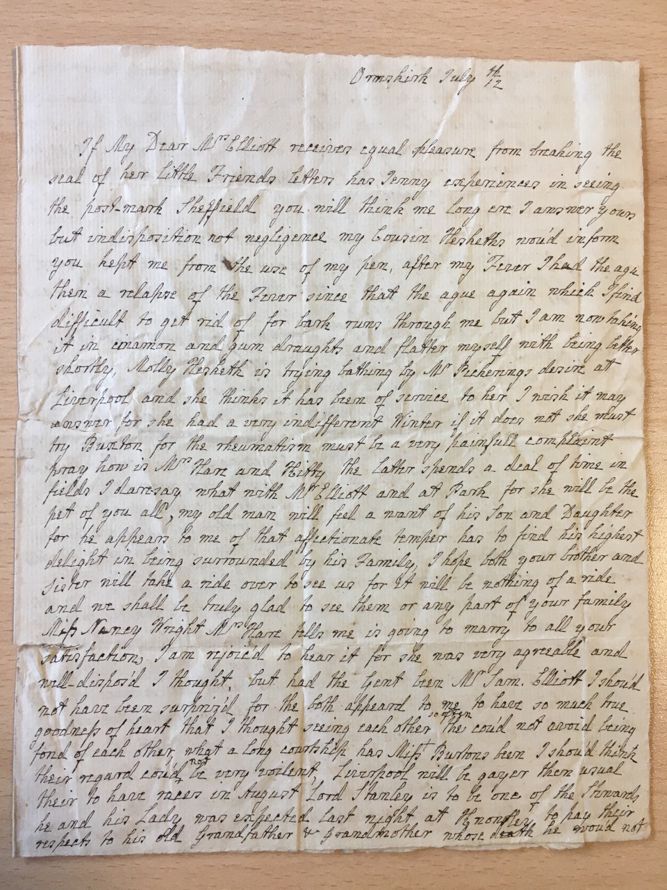 Ormskirk July th/12
If My Dear Mrs Elliott receives equal pleasure from breaking the
seal of her little Friends letters has Jenny experiences in seeing
the post-mark Sheffield you will think me long ere I answer yours
but indisposition not negligence my Cousin Heskeths wou'd inform
you kept me from the use of my pen, after my Fever I had the ague
then a relapse of the Fever since that the ague again which I find
difficult to get rid of for bark runs through me but I am now taking
it in cinamon and gum draughts and flatter myself with being better
shortly, Molly Hesketh is trying bathing by Mr Pickerings desire at
Liverpool and she thinks it has been of service to her I wish it may
answer for she had a very indifferent Winter if it does not she must
try Buxton for the rheumatism must be a very painfull complaint
pray how is Mrs Hare and Kitty the latter spends a deal of time in
fields I daresay what with Mr Elliott and at Park for she will be the
pet of you all, my old man will feel a want of his Son and Daughter
for he appears to me of that affectionate temper has to find his highest
delight in being surrounded by his Family, I hope both your brother and
sister will take a ride over to see us for it will be nothing of a ride
and we shall be truly glad to see them or any part of your family
Miss Nancy Wright Mrs Hare tells me is going to marry to all your
satisfaction, I am rejoic'd to hear it for she was very agreeable and
well-dispos'd I thought, but had the Gent been Mr Sam. Elliott I shou'd
not have been surpriz'd, for the both appeared to me to have so much true
goodness of heart that I thought seeing each other so often the cou'd not avoid being
fond of each other, what a long courtship has Miss Burtons been I should think
their regard cou'd not be very voilent, Liverpool will be gayer then usual
their to have races in August Lord Stanley is to be one of the Stewards
he and his Lady was expected last night at Knowsley to pay their
respects to his old Grandfather & Grandmother whose death he wou'd not